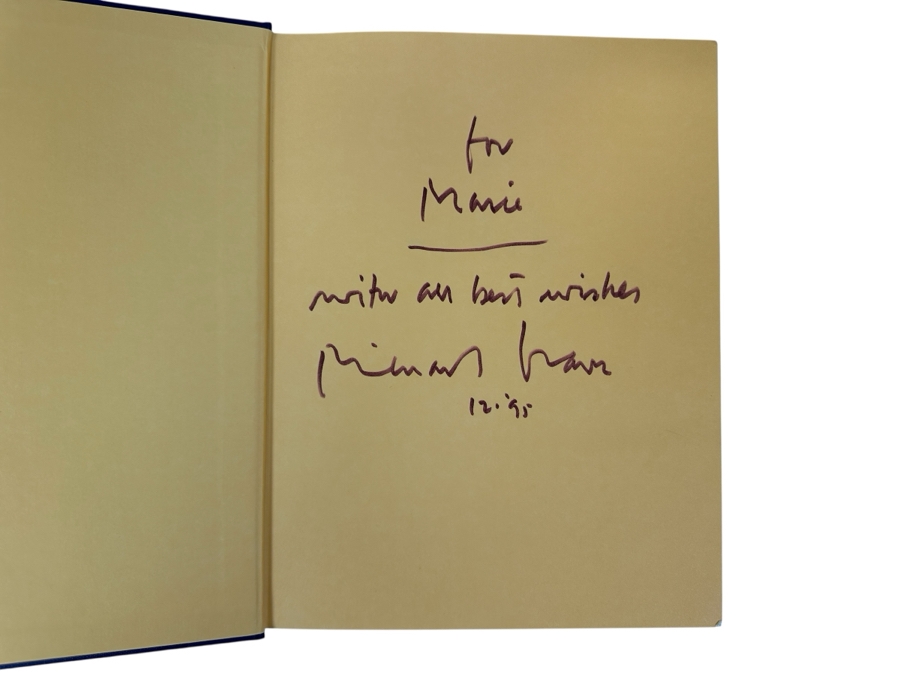 for
Marie
with all best wishes
Richard
12.'95